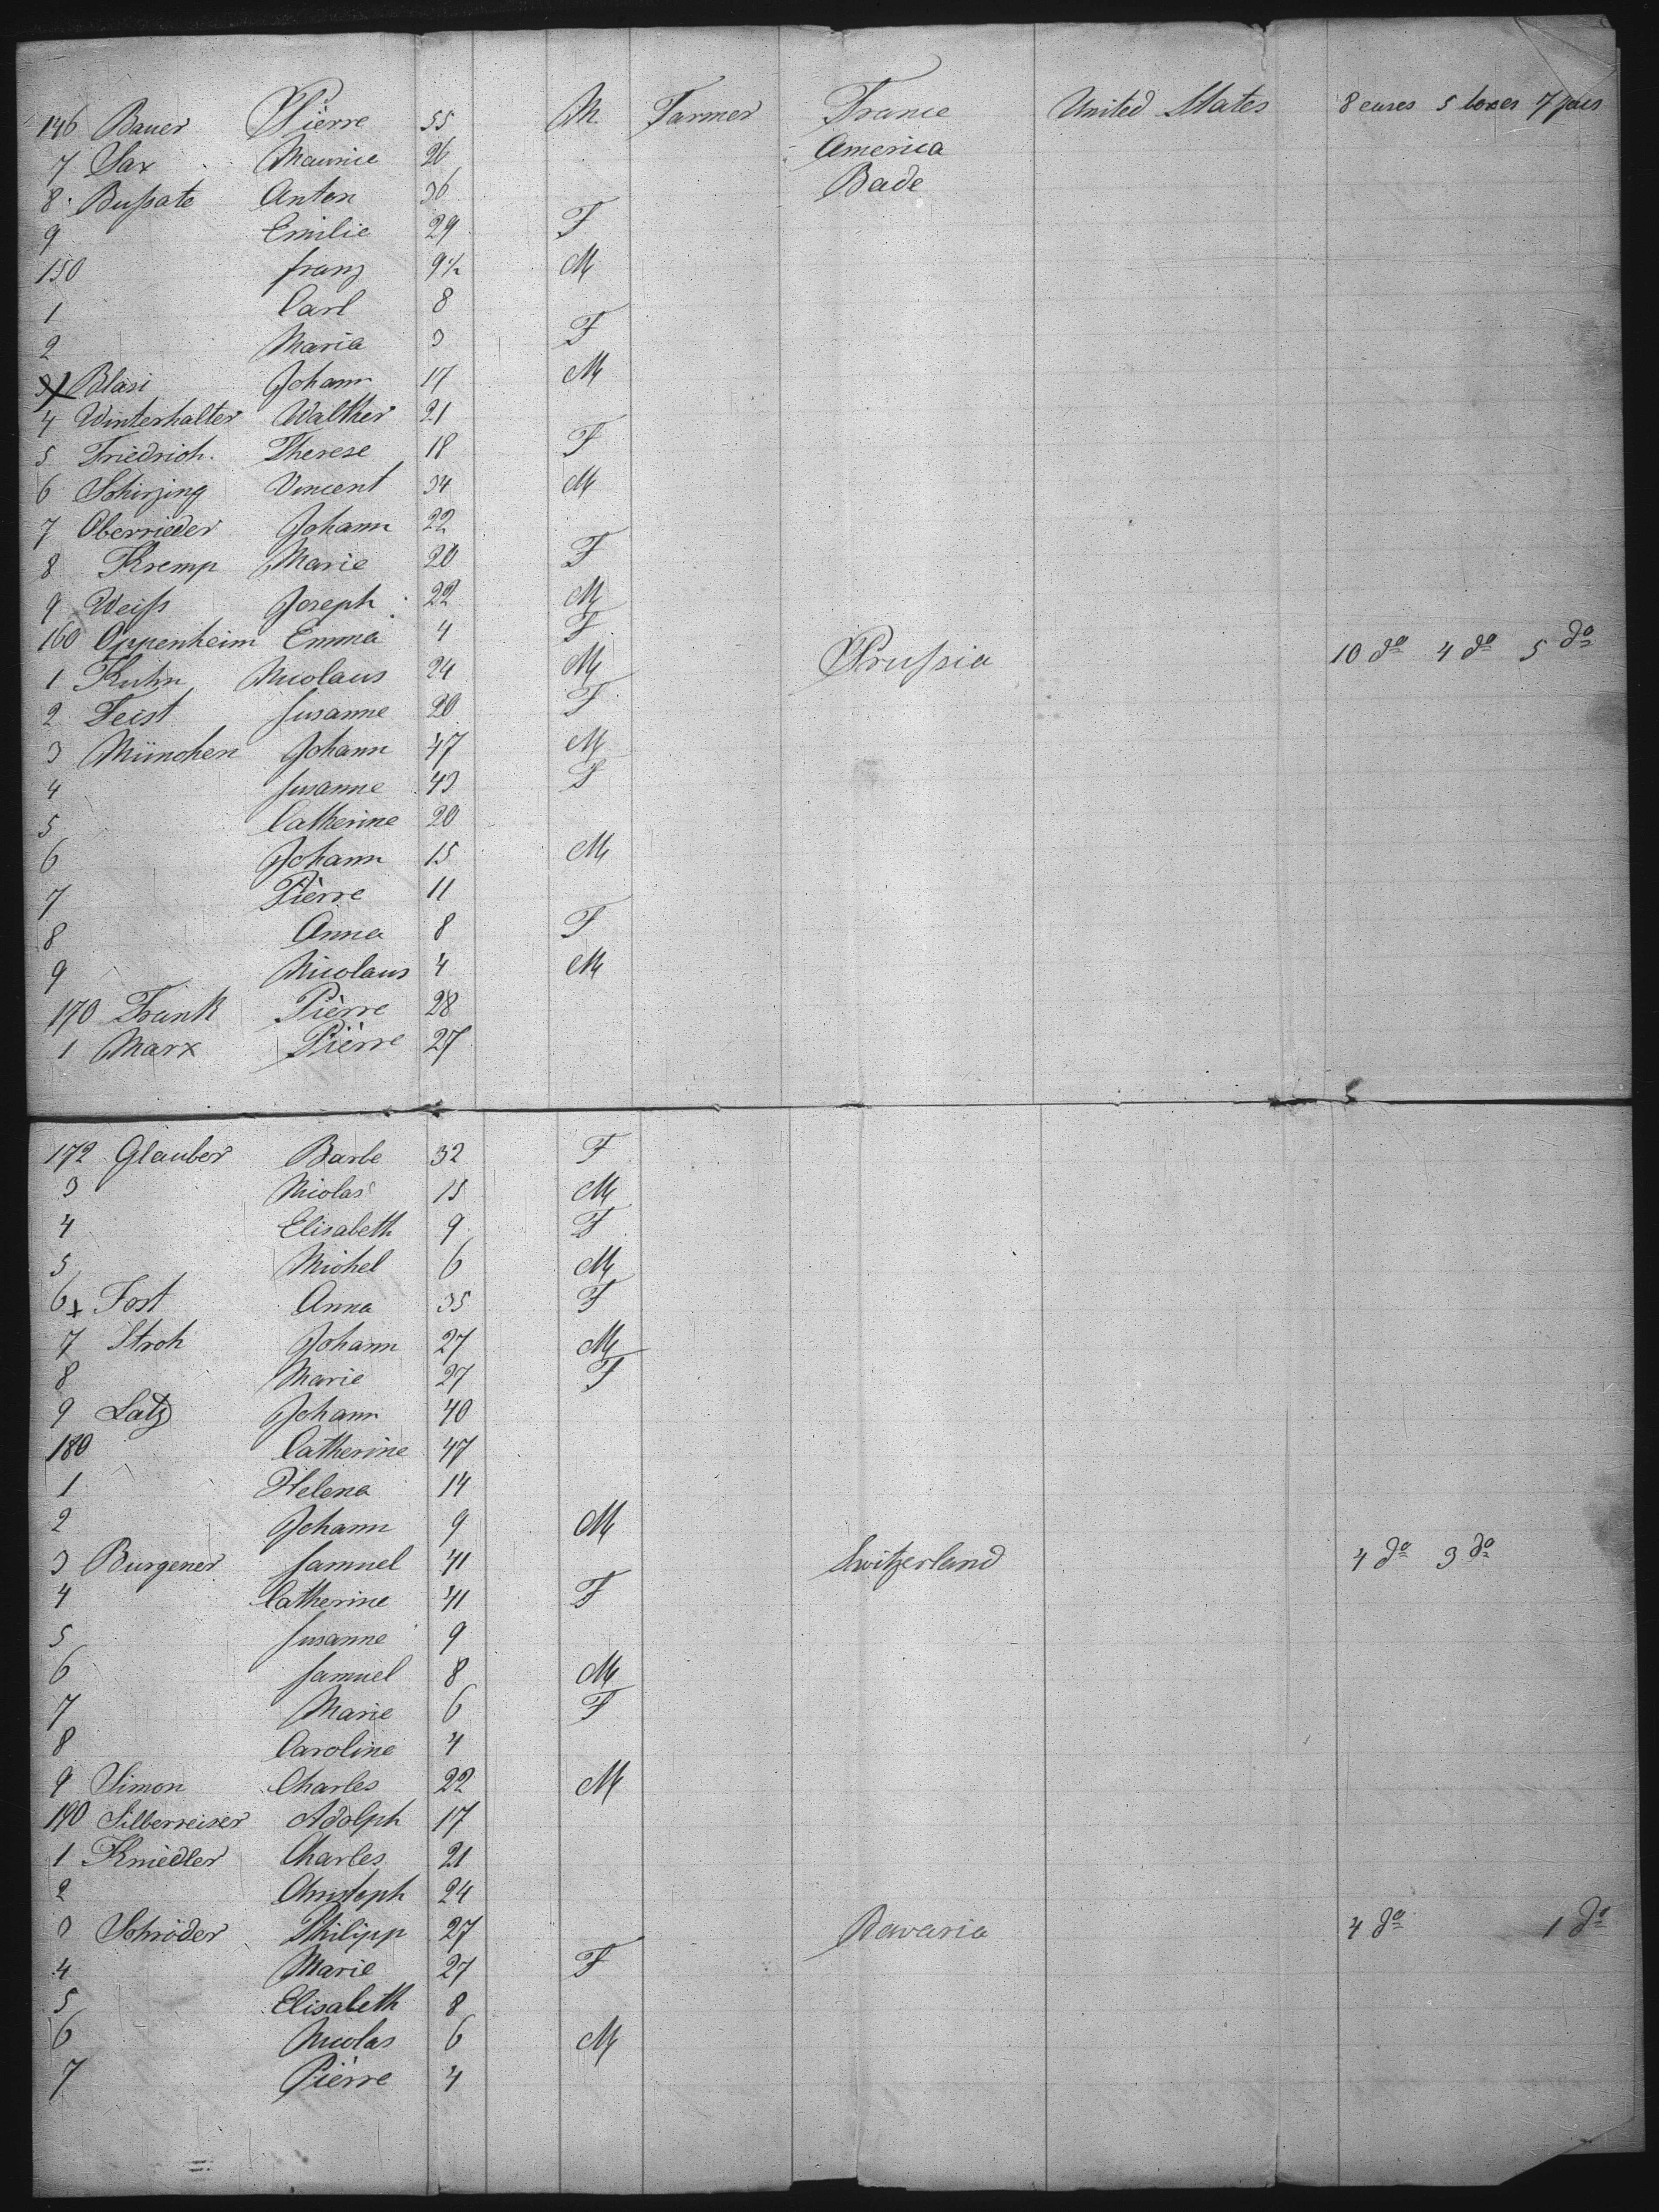 146 Bauer Pièrre 55 M Farmer France United States 8 cases 5 boxes 7 pcs
7 Sax Maurice 26 America
8 Bußate Anton 36 Bade
9 Emilie 29 F
150 franz 9½ M
1 Carl 8
2 Maria 3 F
3 x Blasi Johann 17 M
4 Winterhalter Walther 21
5 Friedrich Therese 18 F
6 Schirzing Vincent 34 M
7 Oberrieder Johann 22
8 Kremp Marie 20 F
9 Weiß Joseph 22 M
160 Oppenheim Emma 4 F
1 Kuhn Nicolaus 24 M Prußia 10 do 4 do 5 do
2 Feist Susanne 20 F
3 München Johann 47 M
4 Susanne 43 F
5 Catherine 20
6 Johann 15 M
7 Pièrre 11
8 Anna 8 F
9 Nicolaus 4 M
170 Frank Pièrre 28
1 Marx Pièrre 27
172 Glauber Barbe 32 F
3 Nicolas 15 M
4 Elisabeth 9 F
5 Michel 6 M
6 x Fost Anna 35 F
7 Stroh Johann 27 M
8 Marie 27 F
9 Latz Johann 40
180 Catherine 47
1 Helena 14
2 Johann 9 M
3 Burgener Samuel 41 Switzerland 4 do 3 do
4 Catherine 41 F
5 Susanne 9
6 Samuel 8 M
7 Marie 6 F
8 Caroline 4
9 Simon Charles 22 M
190 Silberreiser Adolph 17
1 Kniedler Charles 21
2 Christoph 24
3 Schröder Philipp 27 Bavaria 4 do 1 do
4 Marie 27 F
5 Elisabeth 8
6 Nicolas 6 M
7 Pièrre 4